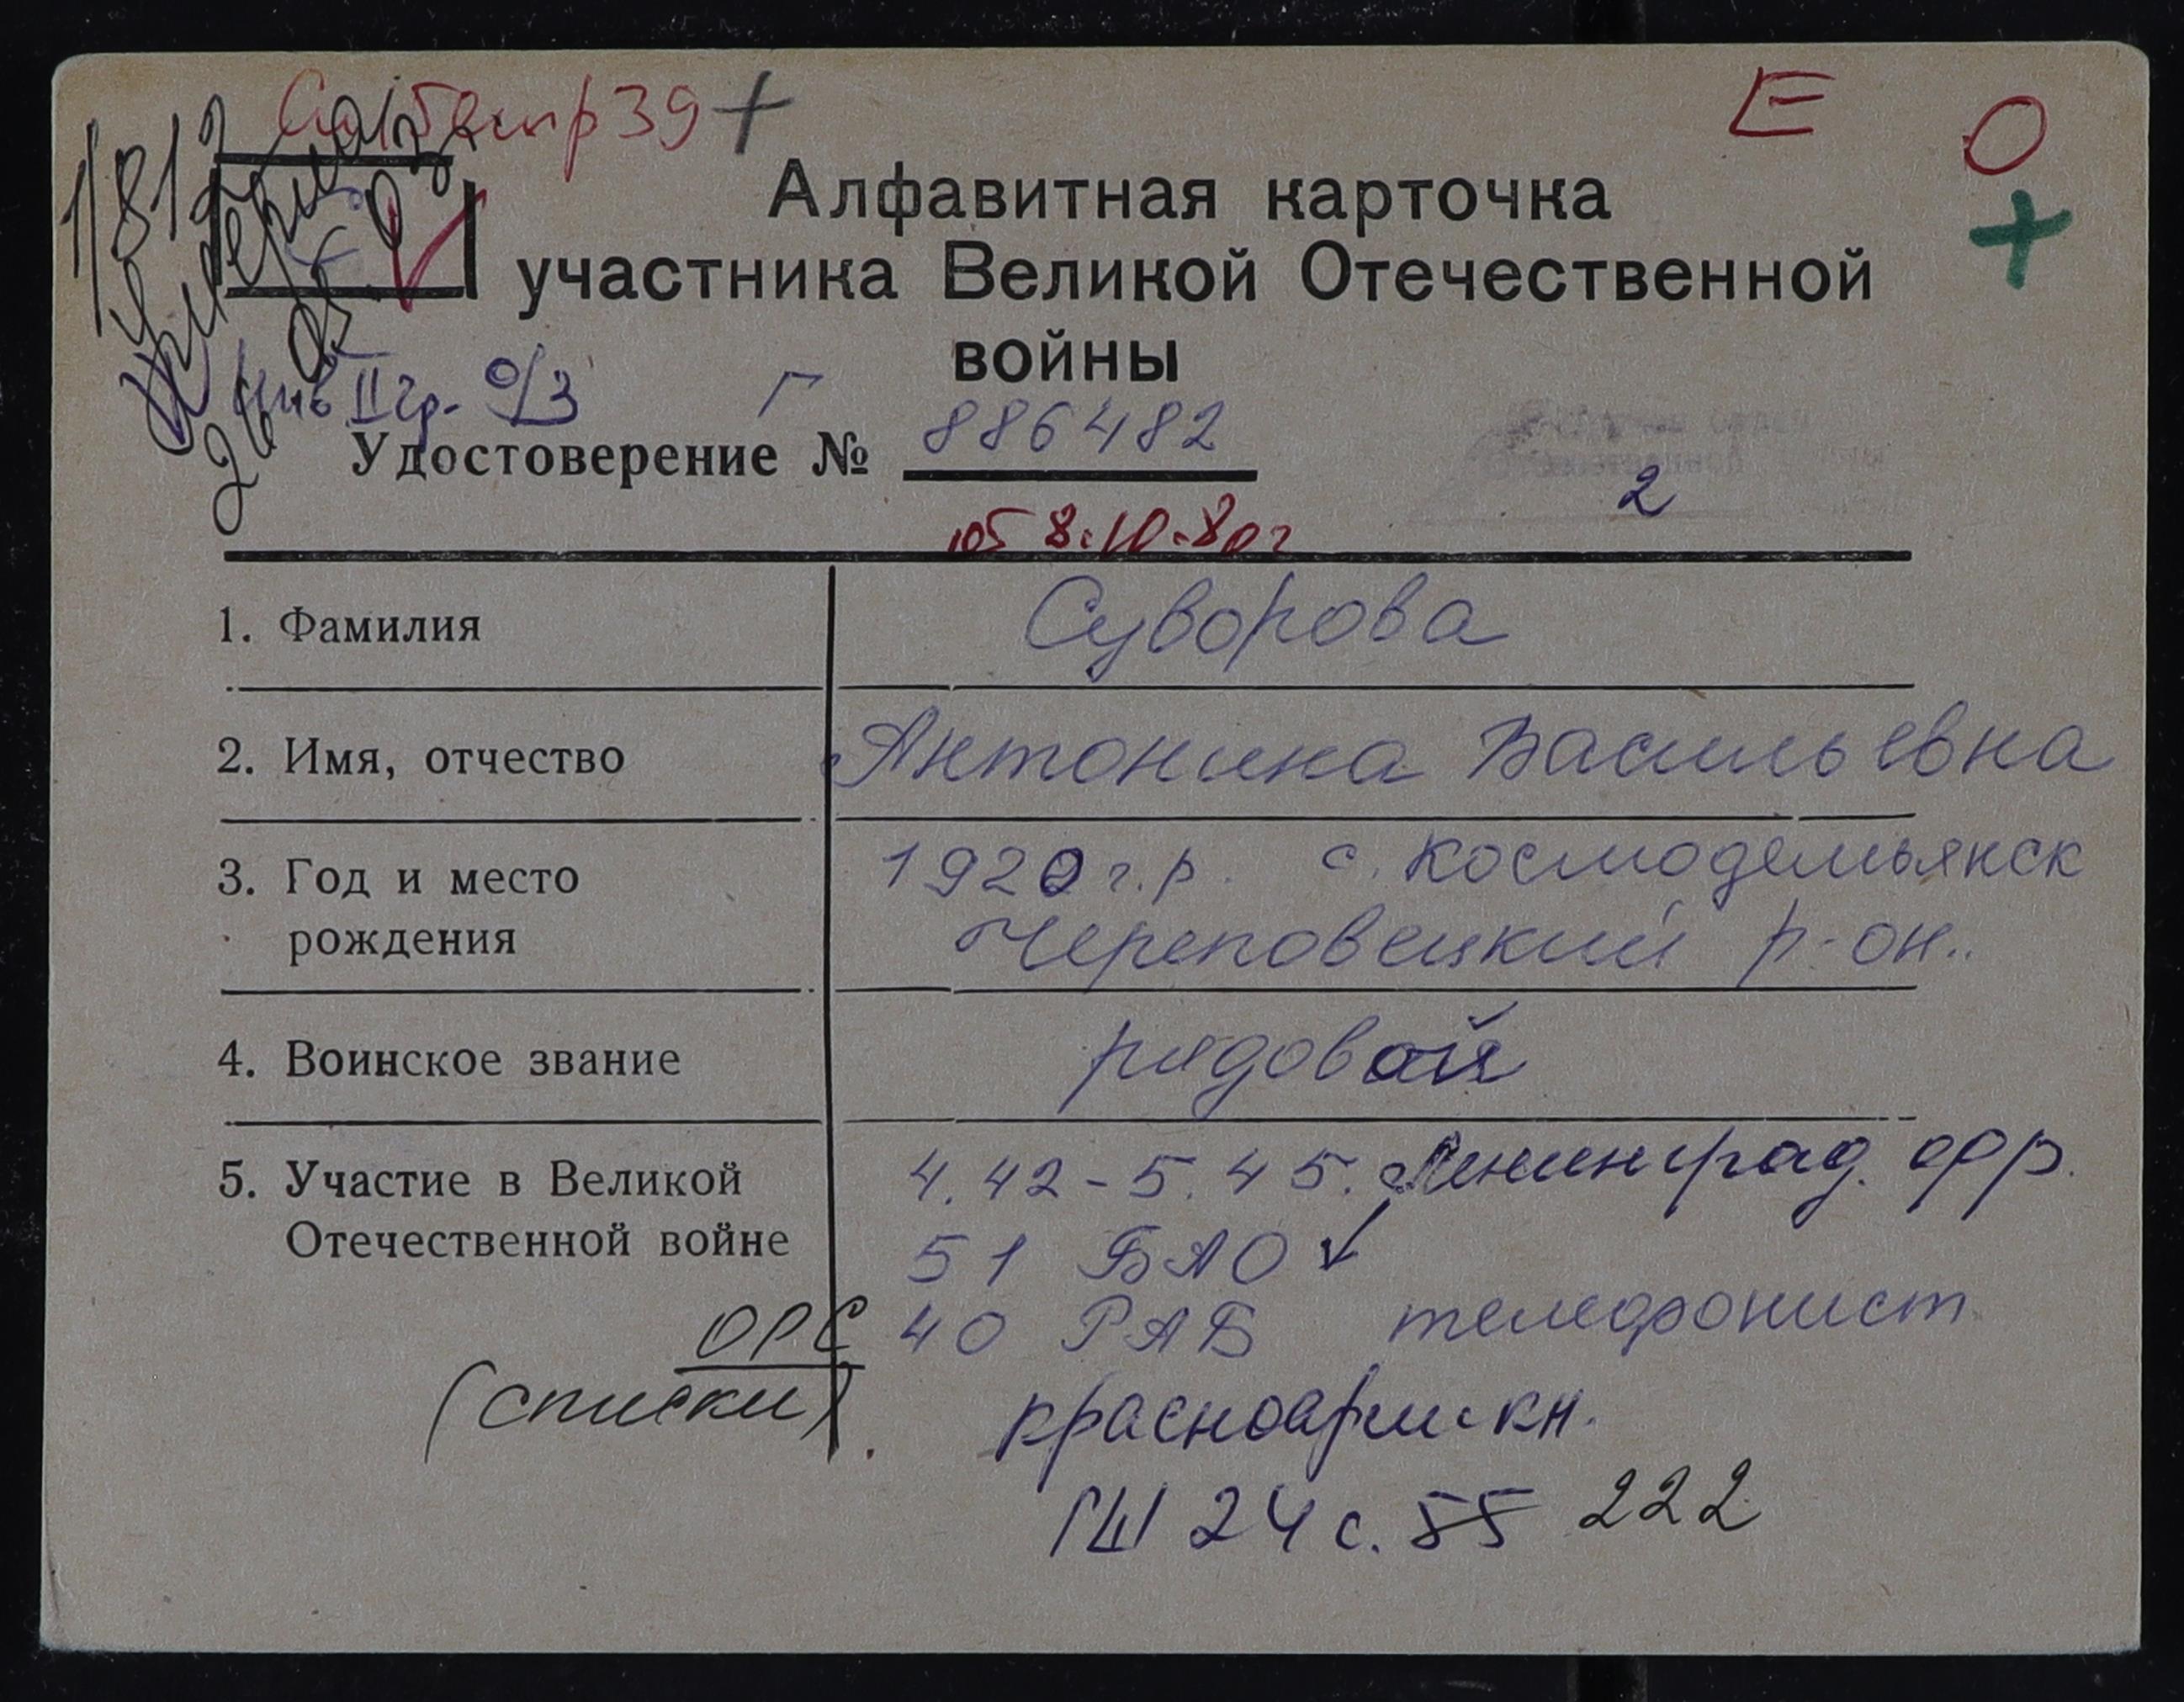 39 +
Е О
+
Алфавитная карточка
участника Великой Отечественной
войны
Инв II гр. о/з Г
Удостоверение № 886482
2
от 8.10.80г
1. Фамилия Суворова
2. Имя, отчество Антонина Васильевна
3. Год и место рождения 1920 г.р. с. Космодемьянск
Череповецкий р-он.
4. Воинское звание рядовой
5. Участие в Великой Отечественной войне 4.42-5.45. Ленинград. фр.
51 БАО
ОРС 40 РАБ телефонист
(списки) красноарм. кн.
ГШ 24 с. 55 222